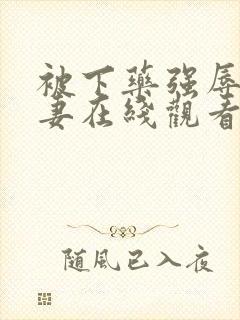 被下藥强辱
妻在綫觀看
随風已入夜